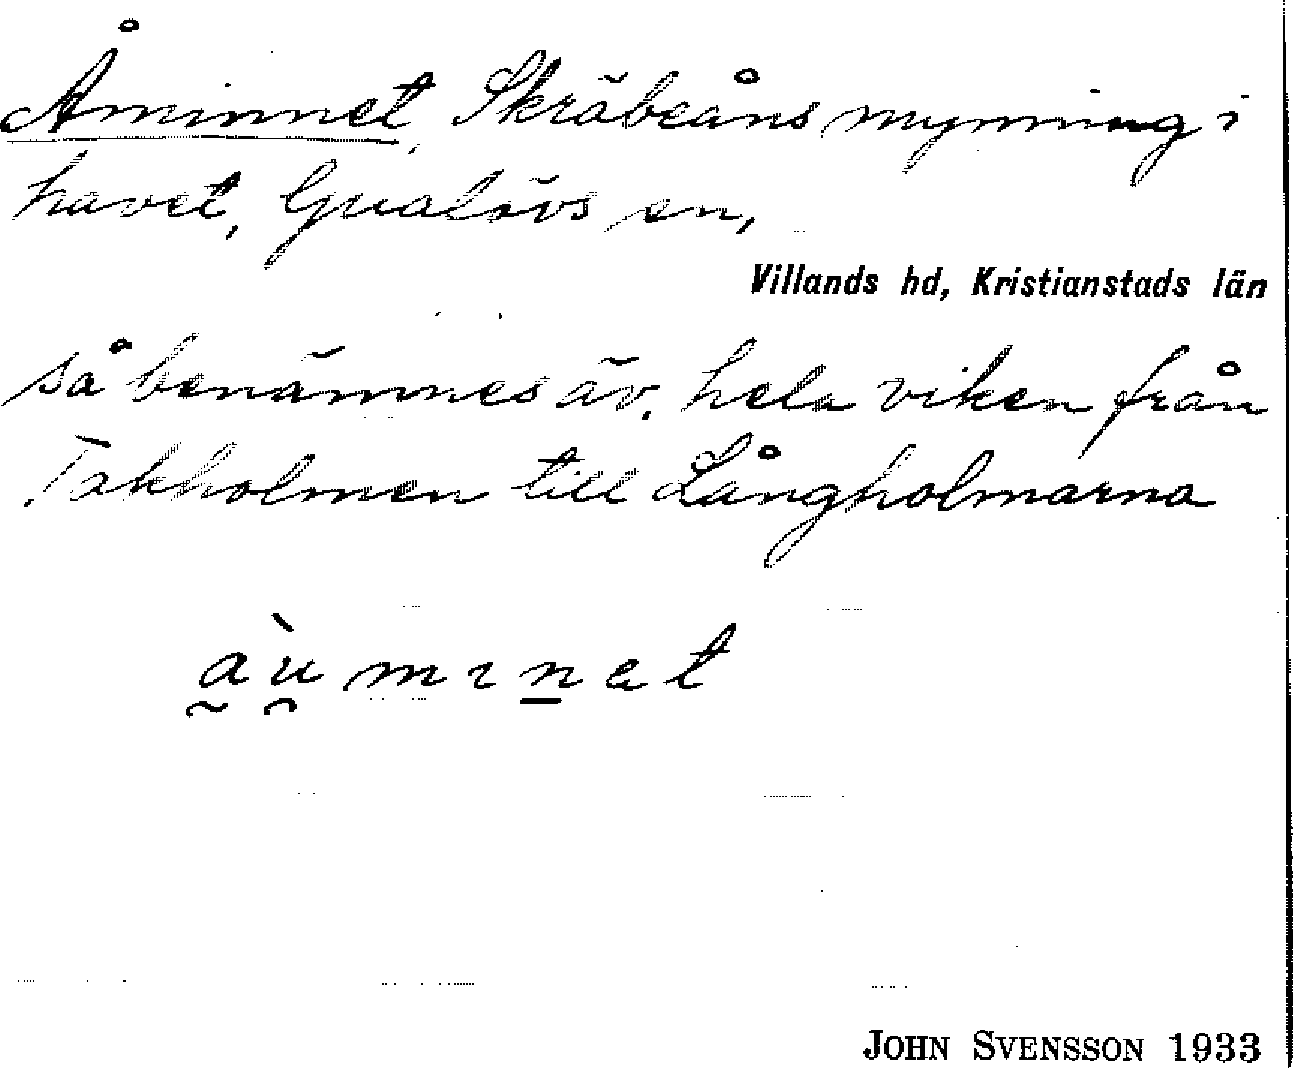 Åminnet, Skräbeåns mynning i
havet, Gualövs sn,
Villands hd, Kristianstads län
så benämnes äv. hela viken från
Takholmen till Långholmarna
àu̯mınet
JOHN SVENSSON 1933